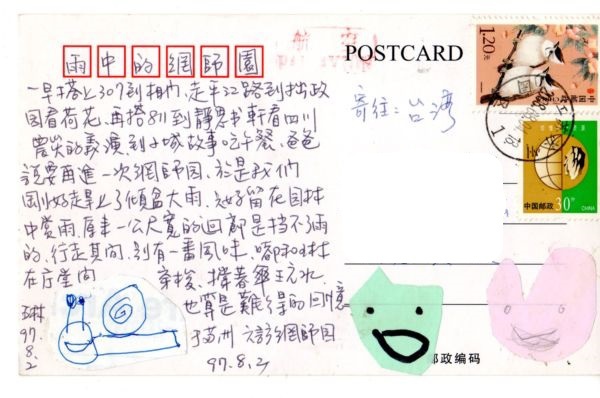 POSTCARD
雨中的網師園
一早搭上307到相門,走平江路到拙政
園看荷花,再搭811到靜思書軒看四川
農災的義演到小城故事吃午餐,爸爸
說要再進一次網師園,於是我們
剛好走上了傾盆大雨,只好留在園林
中賞雨,原來一公尺寬的迴廊是擋不了雨
的,行走其間,別有一番風味,
在廳堂間 穿梭,撐著傘玩水,
也算是難得的回憶
於蘇州 網師園
97.8.2
97.
8.
2
寄往:台灣
1.20元
中国邮政
30分
CHINA
中国邮政
邮政编码